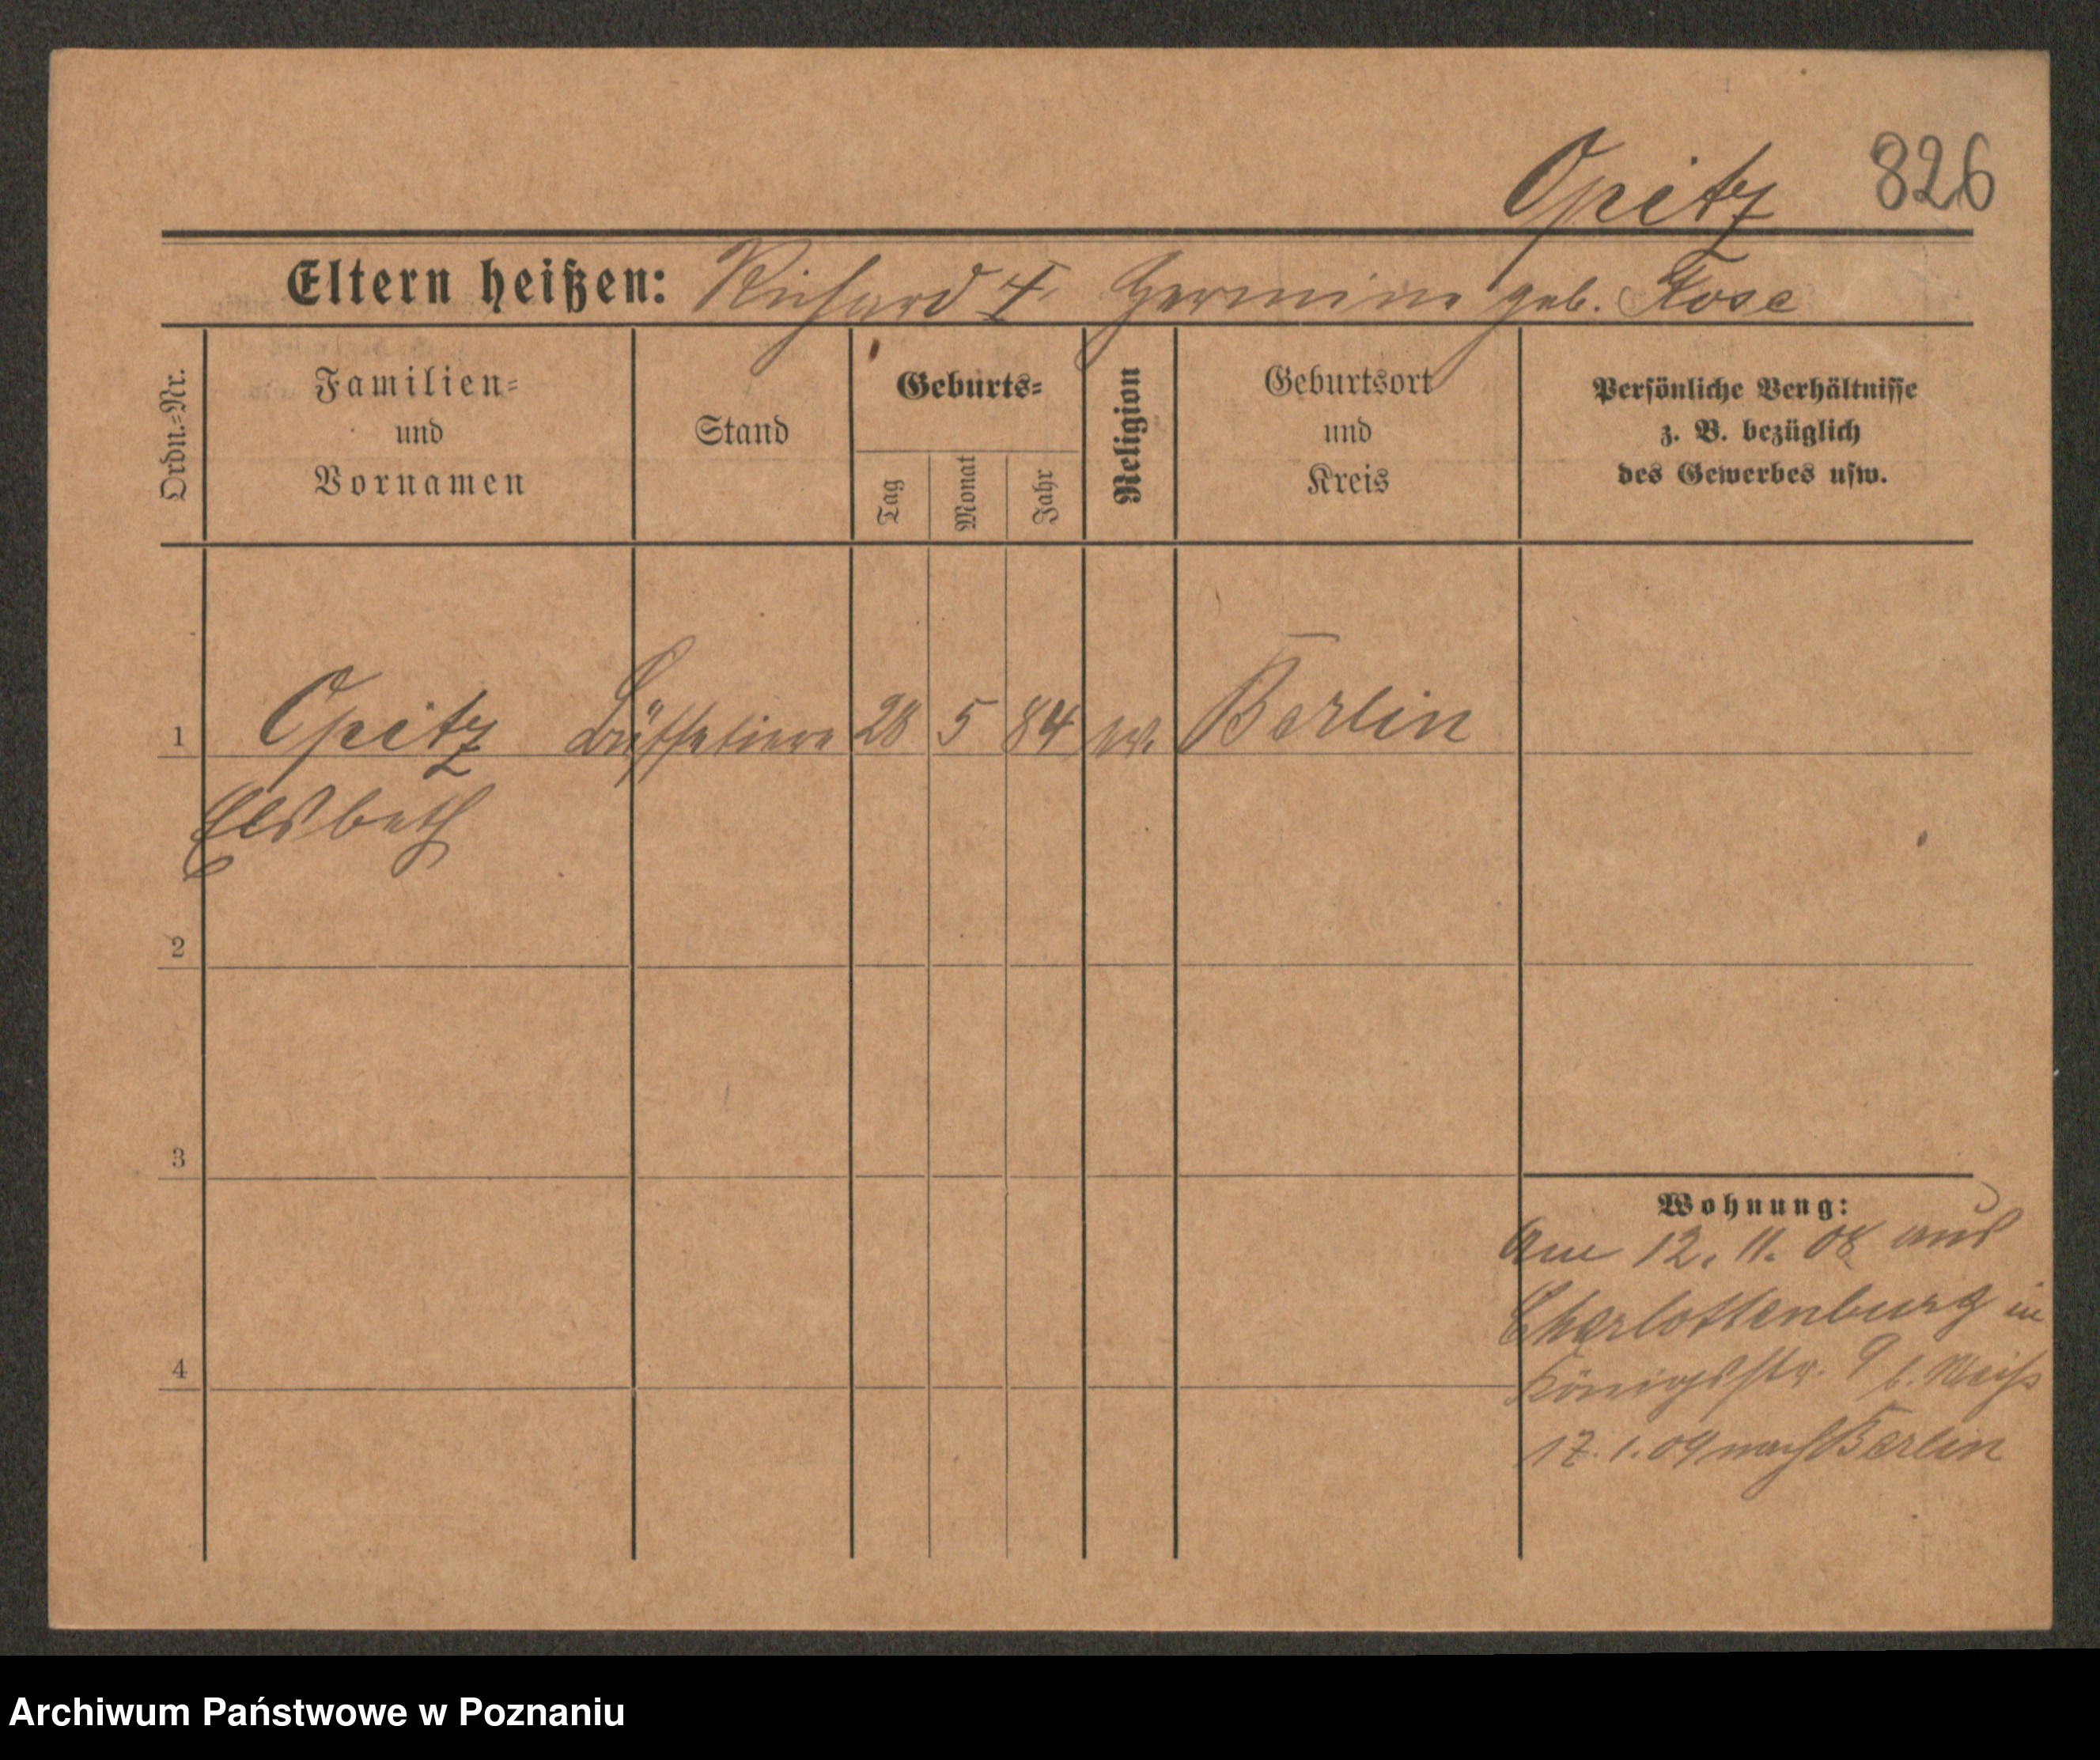 Opitz 826
Eltern heißen: Richard †, Hermine geb. Rose
Ordn.-Nr.
Familien-
und
Vornamen
Stand
Geburts-
Tag
Monat
Jahr
Religion
Geburtsort
und
Kreis
Persönliche Verhältnisse
z. B. bezüglich
des Gewerbes usw.
1 Opitz 28 5 84 Berlin
Elsbeth
2
3
Wohnung:
Am 12. 11. 08 aus
Charlottenburg in
4
Königsstr. 9 b. Weiss
17. 1. 09 nach Berlin
Archiwum Państwowe w Poznaniu